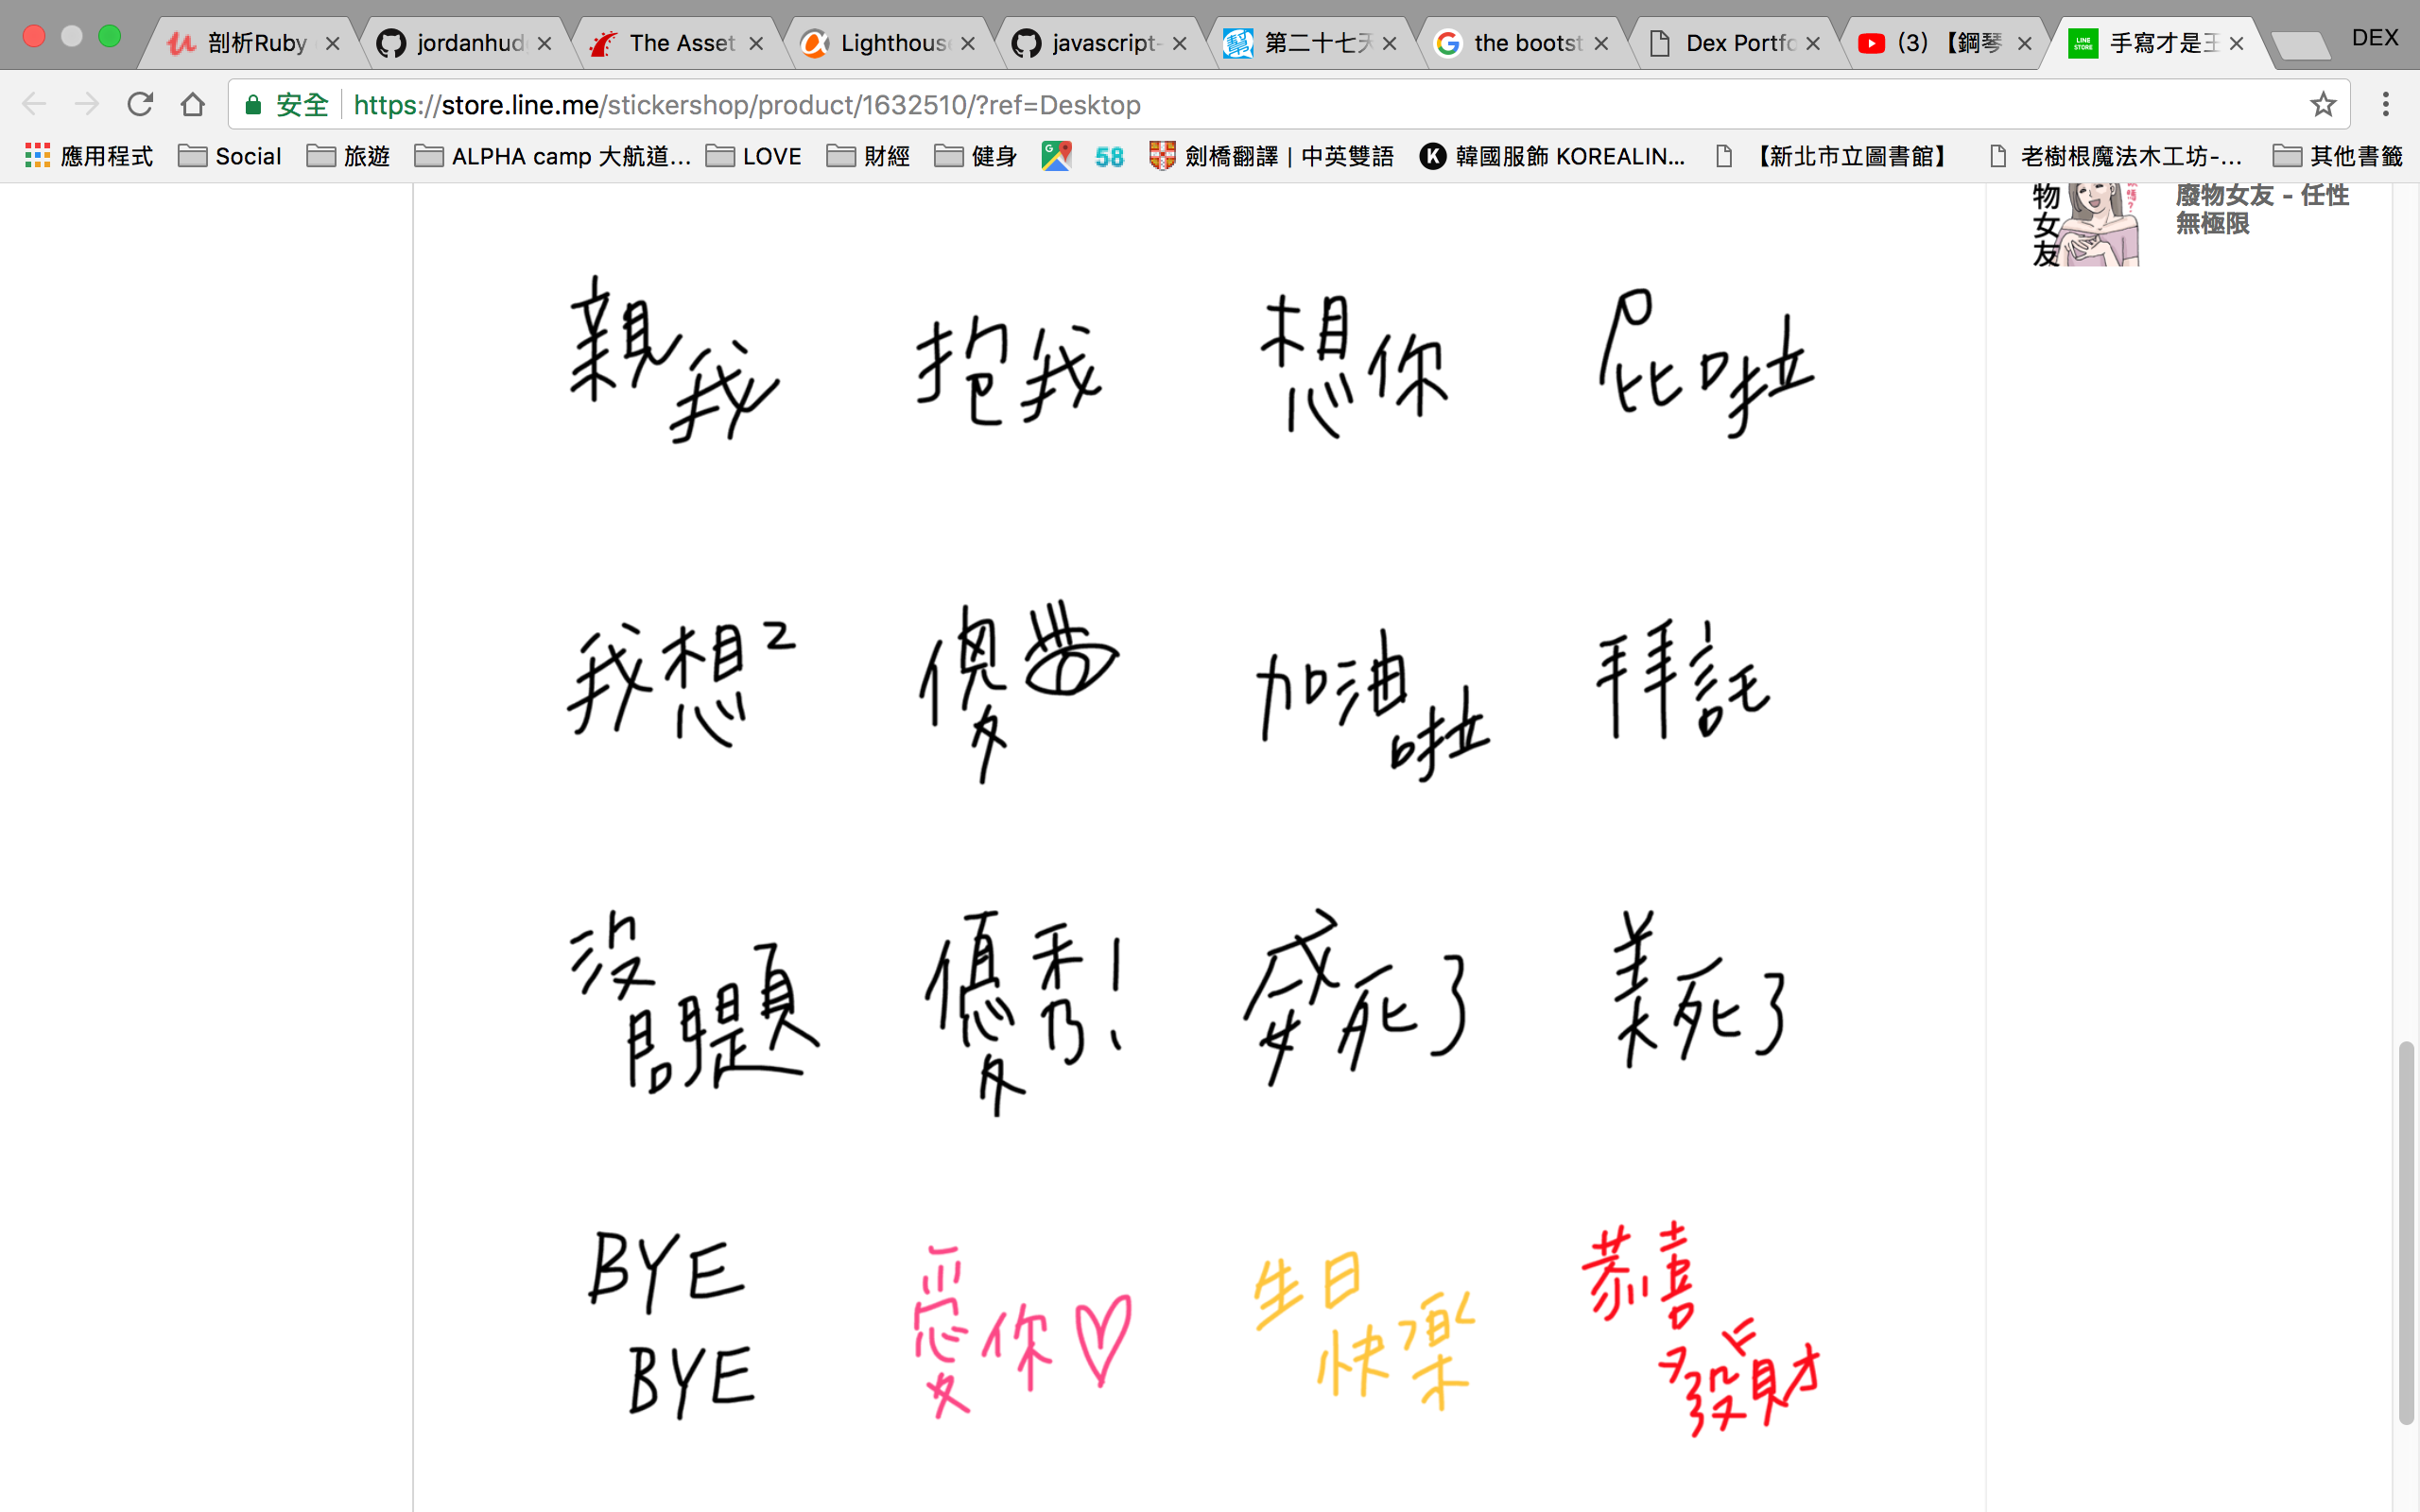 剖析Ruby
jordanhud
The Asset
Lighthouse
javascript-
第二十七天
the bootst
Dex Portfo
(3) 【鋼琴
手寫才是王
DEX
安全 https://store.line.me/stickershop/product/1632510/?ref=Desktop
應用程式 Social 旅遊 ALPHA camp 大航道... LOVE 財經 健身 58 劍橋翻譯 | 中英雙語 韓國服飾 KOREALIN... 【新北市立圖書館】 老樹根魔法木工坊-... 其他書籤
物女友
廢物女友 - 任性
無極限
親我
抱我
想你
屁啦
我想²
傻
加油啦
拜託
沒問題
優秀!
威死了
美死了
BYE
BYE
愛你♡
生日
快樂
恭喜
發財